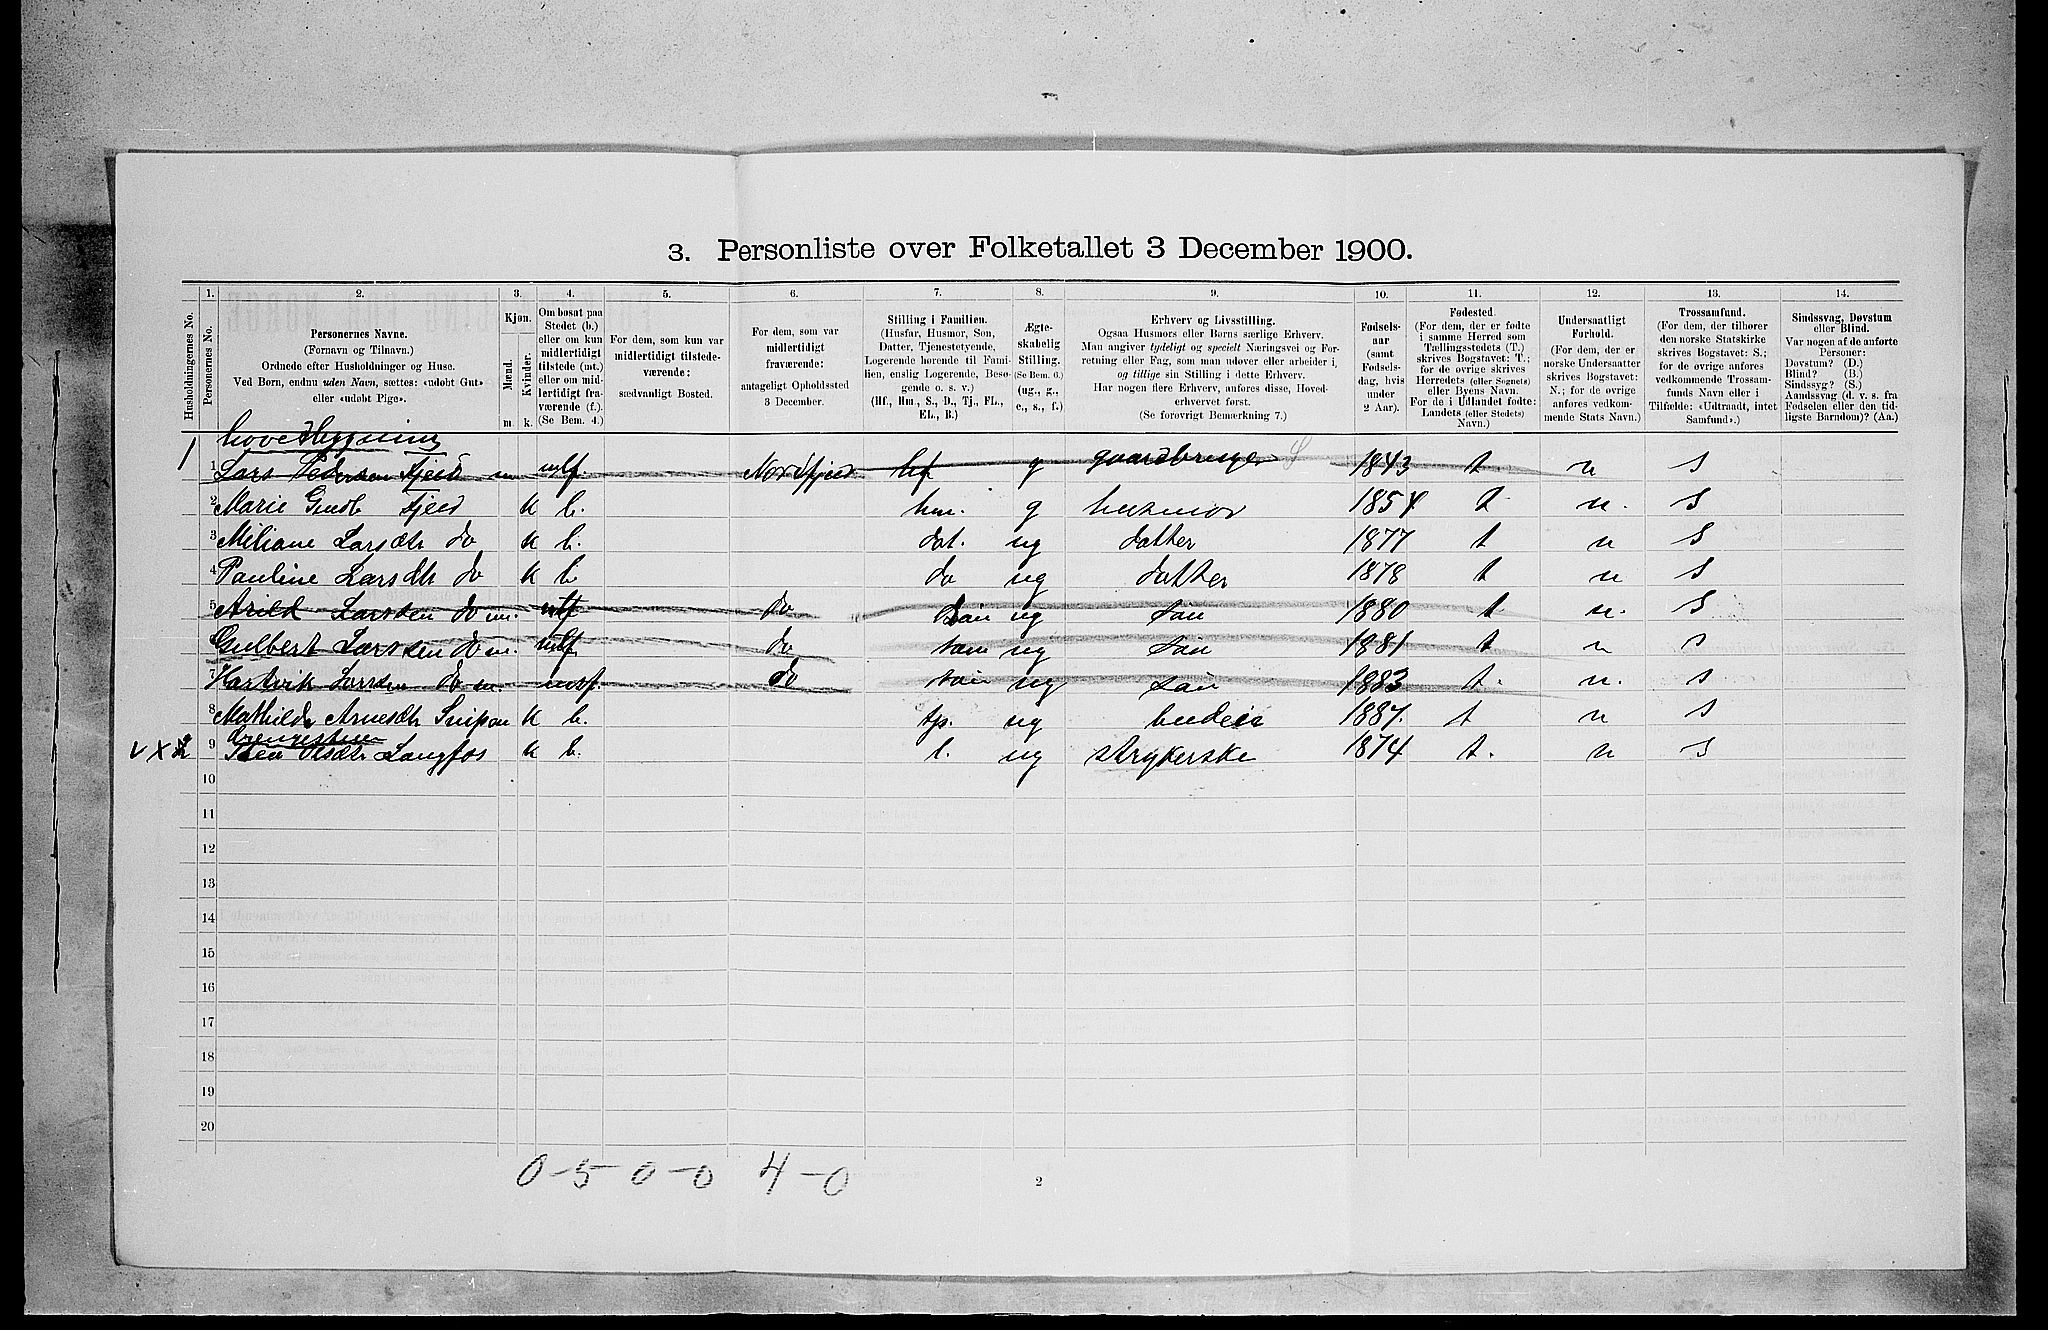 3. Personliste over Folketallet 3 December 1900.
Husholdningernes No.
1.
Personernes No.
2.
Personernes Navne.
(Fornavn og Tilnavn.)
Ordnede efter Husholdninger og Huse.
Ved Børn, endnu uden Navn, sættes: «udøbt Gut»
eller «udøbt Pige».
3.
Kjøn.
Mænd.
Kvinder.
m. k.
4.
Om bosat paa
Stedet (b.)
eller om kun
midlertidigt
tilstede (mt.)
eller om mid-
lertidigt fra-
værende (f.)
(Se Bem. 4.)
5.
For dem, som kun var
midlertidigt tilstede-
værende:
sædvanligt Bosted.
6.
For dem, som var
midlertidigt
fraværende:
antageligt Opholdssted
3 December.
7.
Stilling i Familien.
(Husfar, Husmor, Søn,
Datter, Tjenestetyende,
Logerende hørende til Fami-
lien, enslig Logerende, Besø-
gende o. s. v.)
(Hf., Hm., S., D., Tj., FL.,
EL., B.)
8.
Ægte-
skabelig
Stilling.
(Se Bem. 6.)
(ug., g.,
e., s., f.)
9.
Erhverv og Livsstilling.
Ogsaa Husmors eller Børns særlige Erhverv.
Man angiver tydeligt og specielt Næringsvei og For-
retning eller Fag, som man udøver eller arbeider i,
og tillige sin Stilling i dette Erhverv.
Har nogen flere Erhverv, anføres disse, Hoved-
erhvervet først.
(Se forøvrigt Bemærkning 7.)
10.
Fødsels-
aar
(samt
Fødsels-
dag, hvis
under
2 Aar).
11.
Fødested.
(For dem, der er fødte
i samme Herred som
Tællingsstedets (T.)
skrives Bogstavet: T.;
for de øvrige skrives
Herredets (eller Sognets)
eller Byens Navn.
For de i Udlandet fødte:
Landets (eller Stedets)
Navn.)
12.
Undersaatligt
Forhold.
(For dem, der er
norske Undersaatter
skrives Bogstavet:
N.; for de øvrige
anføres vedkom-
mende Stats Navn.)
13.
Trossamfund.
(For dem, der tilhører
den norske Statskirke
skrives Bogstavet: S.;
for de øvrige anføres
vedkommende Trossam-
funds Navn eller i
Tilfælde: «Udtraadt, intet
Samfund».)
14.
Sindssvag, Døvstum
eller Blind.
Var nogen af de anførte
Personer:
Døvstum? (D.)
Blind? (B.)
Sindssyg? (S.)
Aandssvag (d. v. s. fra
Fødselen eller den tid-
ligste Barndom)? (Aa.)
hovedbygning
1 1 Lars Pedersen Fjeld m Nordfjeld hf g gaardbruger 1843 t n S
2 Marie Gudb Fjeld k b. hm. g husmor 1854 t n. S
3 Miliane Larsdtr do k b. dat. ug datter 1877 t n S
4 Pauline Larsdtr do k b do ug datter 1878 t n S
5 Arild Larssen do m. do søn ug søn 1880 t n. S
Gulbert Larssen do m. do søn ug søn 1881 t n S
7 Hartvik Larssen do m. do søn ug søn 1883 t. n. S
8 Mathilde Arnesdtr k b. tj. ug budeie 1887. t n S
drengestuen
v x 2 9 Olsdtr Langfos k b. l. ug strykerske 1874 t. n S
10
11
12
13
14
15
16
17
18
19
20
0-5 0-0 4-0
2